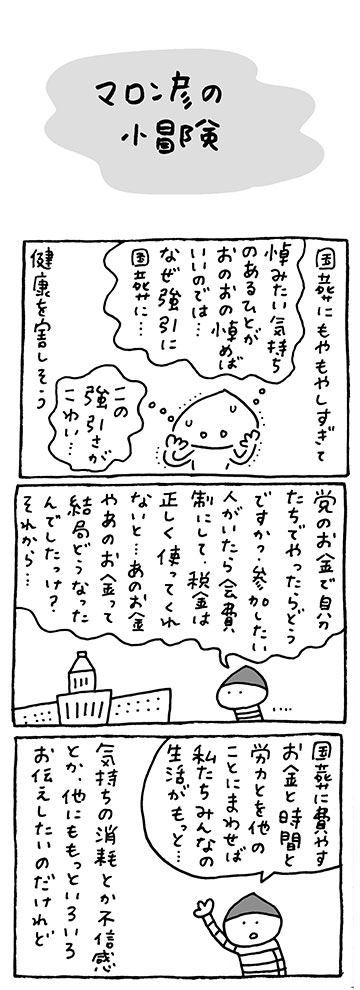 マロン彦の
小冒険
国葬にもやもやしすぎて
悼みたい気持ち
のあるひとが
おのおの悼めば
いいのでは…
なぜ強引に
国葬に…
この
強引さが
こわい…
健康を害しそう
党のお金で自分
たちでやったらどう
ですか?参加したい
人がいたら会費
制にして、税金は
正しく使ってくれ
ないと…あのお金
やあのお金って
結局どうなった
んでしたっけ?
それから…
国葬に費やす
お金と時間と
労力とを他の
ことにまわせば
私たちみんなの
生活がもっと…
気持ちの消耗とか不信感
とか、他にももっといろいろ
お伝えしたいのだけれど